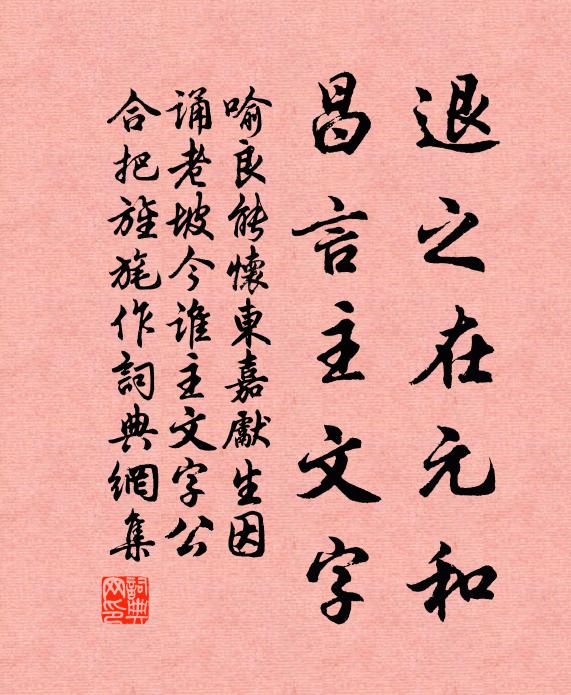 退之在元和
昌言主文字
喻良能懷東嘉獻生因
誦老坡今誰主文字公
合把旌旄作詞典網集
詞典網印